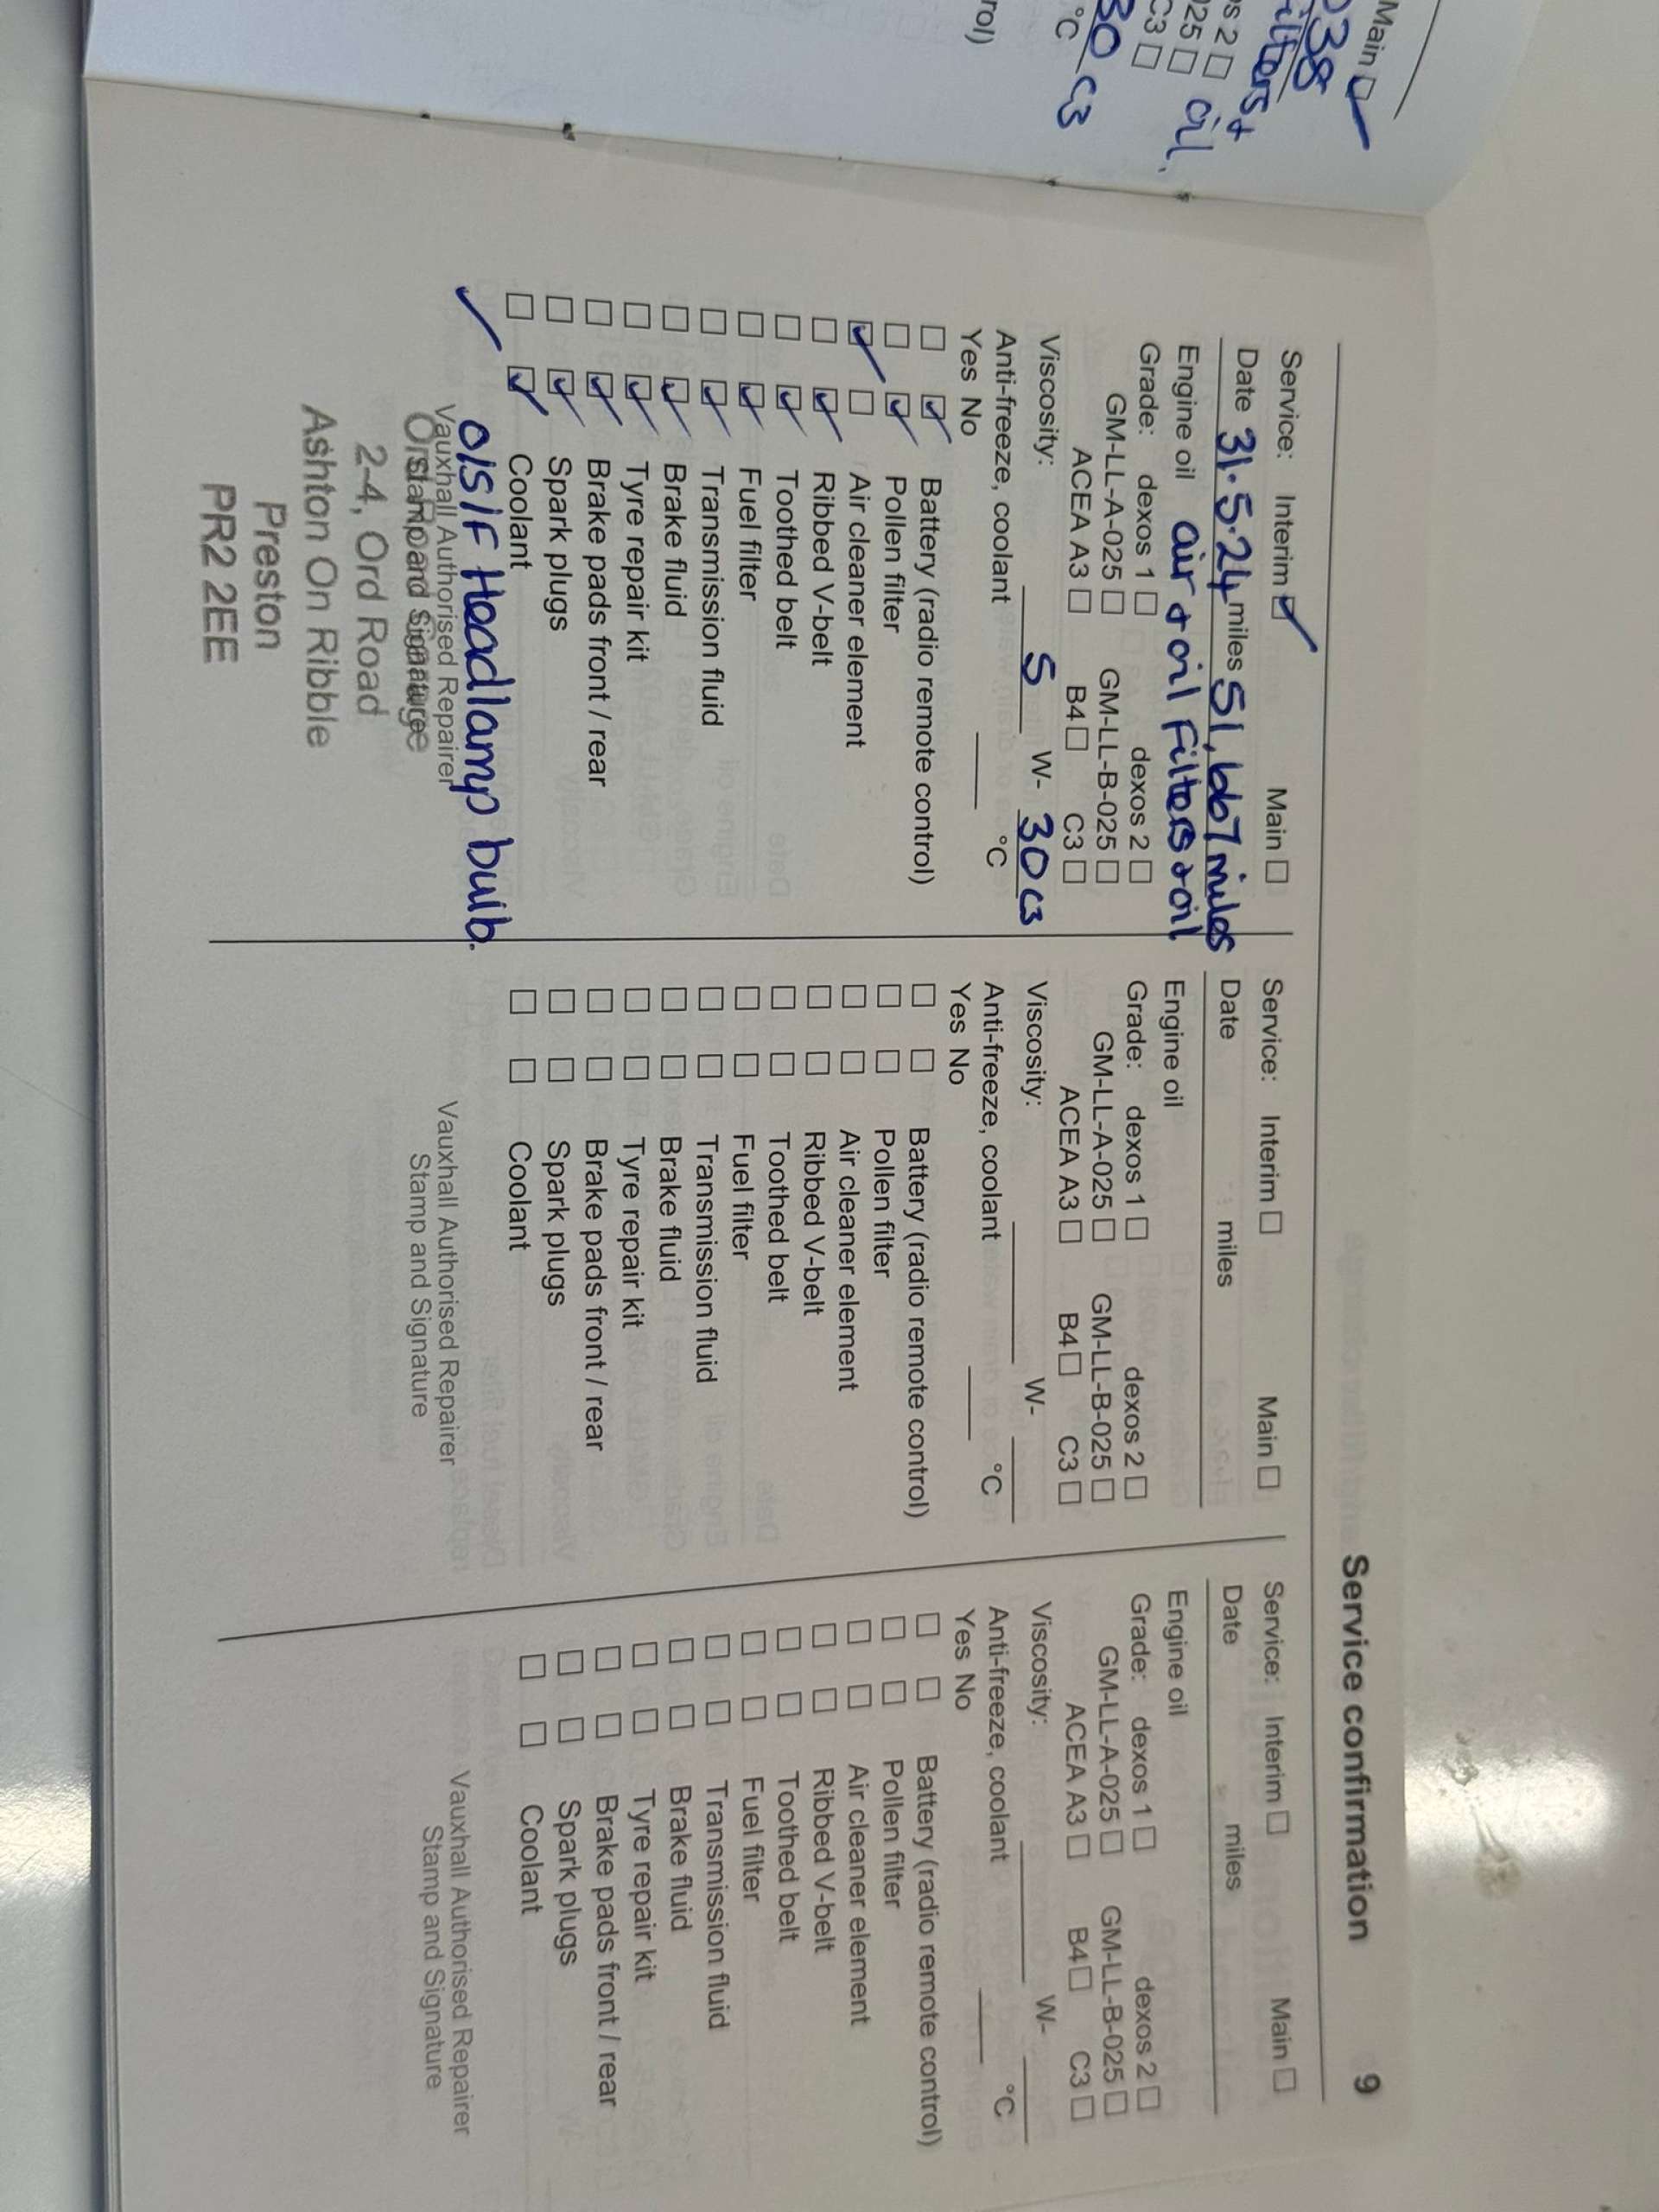 Main
038
ilters+
s 2 oil.
025
C3
30 C3
°C
rol)
Service confirmation 9
Service: Interim Main
Date 31.5.24 miles 51,667 miles
Engine oil air + oil filters + oil
Grade: dexos 1 dexos 2
GM-LL-A-025 GM-LL-B-025
ACEA A3 B4 C3
Viscosity: 5 W- 30 C3
Anti-freeze, coolant °C
Yes No
Battery (radio remote control)
Pollen filter
Air cleaner element
Ribbed V-belt
Toothed belt
Fuel filter
Transmission fluid
Brake fluid
Tyre repair kit
Brake pads front / rear
Spark plugs
Coolant
O/S/F Headlamp bulb.
Vauxhall Authorised Repairer
Stamp and Signature
2-4, Ord Road
Ashton On Ribble
Preston
PR2 2EE
Service: Interim Main
Date miles
Engine oil
Grade: dexos 1 dexos 2
GM-LL-A-025 GM-LL-B-025
ACEA A3 B4 C3
Viscosity: W-
Anti-freeze, coolant °C
Yes No
Battery (radio remote control)
Pollen filter
Air cleaner element
Ribbed V-belt
Toothed belt
Fuel filter
Transmission fluid
Brake fluid
Tyre repair kit
Brake pads front / rear
Spark plugs
Coolant
Vauxhall Authorised Repairer
Stamp and Signature
Service: Interim Main
Date miles
Engine oil
Grade: dexos 1 dexos 2
GM-LL-A-025 GM-LL-B-025
ACEA A3 B4 C3
Viscosity: W-
Anti-freeze, coolant °C
Yes No
Battery (radio remote control)
Pollen filter
Air cleaner element
Ribbed V-belt
Toothed belt
Fuel filter
Transmission fluid
Brake fluid
Tyre repair kit
Brake pads front / rear
Spark plugs
Coolant
Vauxhall Authorised Repairer
Stamp and Signature